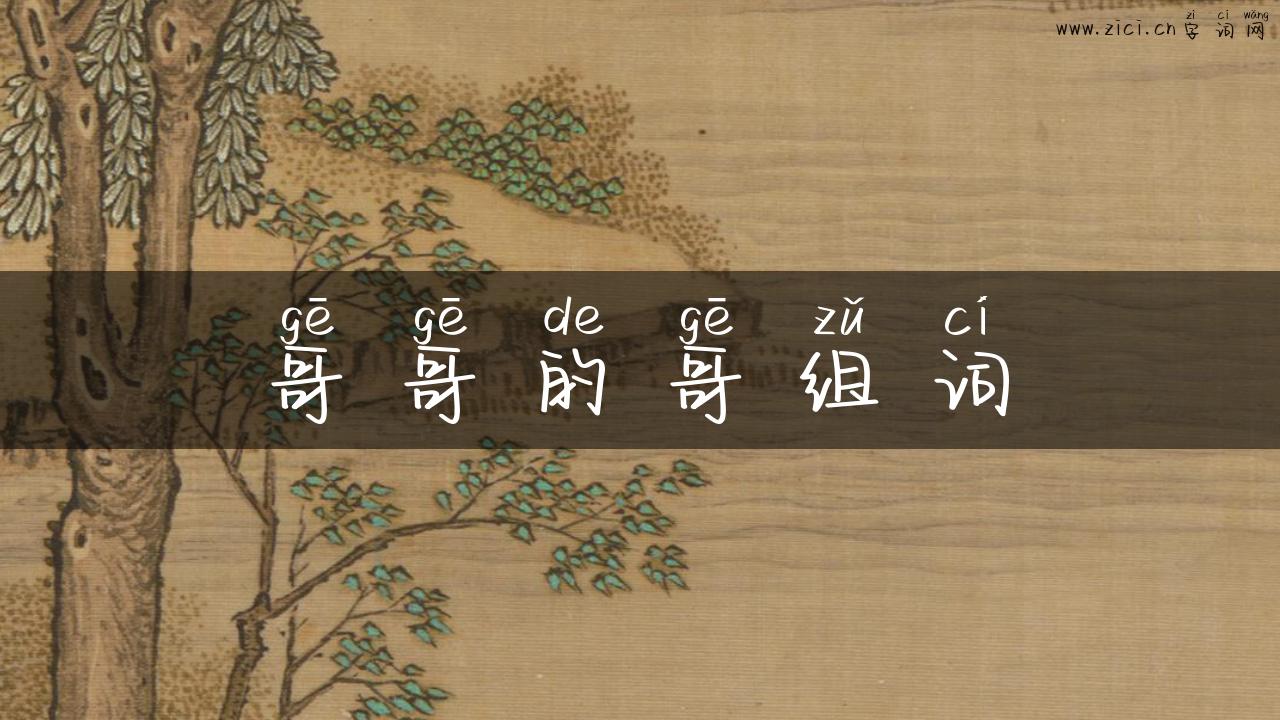 zì cí wǎng
www.zici.cn 字词网
gē gē de gē zǔ cí
哥哥的哥组词